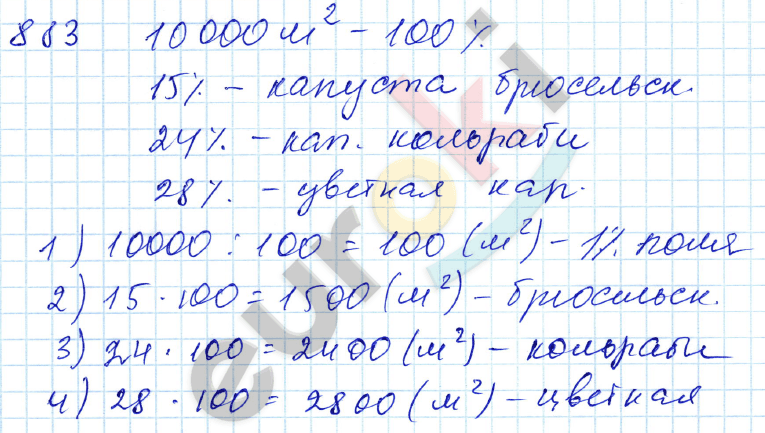 883 10000 м² – 100%
15% – капуста брюсельск.
24% – кап. кольраби
28% – цветная кап.
1) 10000 : 100 = 100 (м²) – 1% поля
2) 15 · 100 = 1500 (м²) – брюсельск.
3) 24 · 100 = 2400 (м²) – кольраби
4) 28 · 100 = 2800 (м²) – цветная
euroki